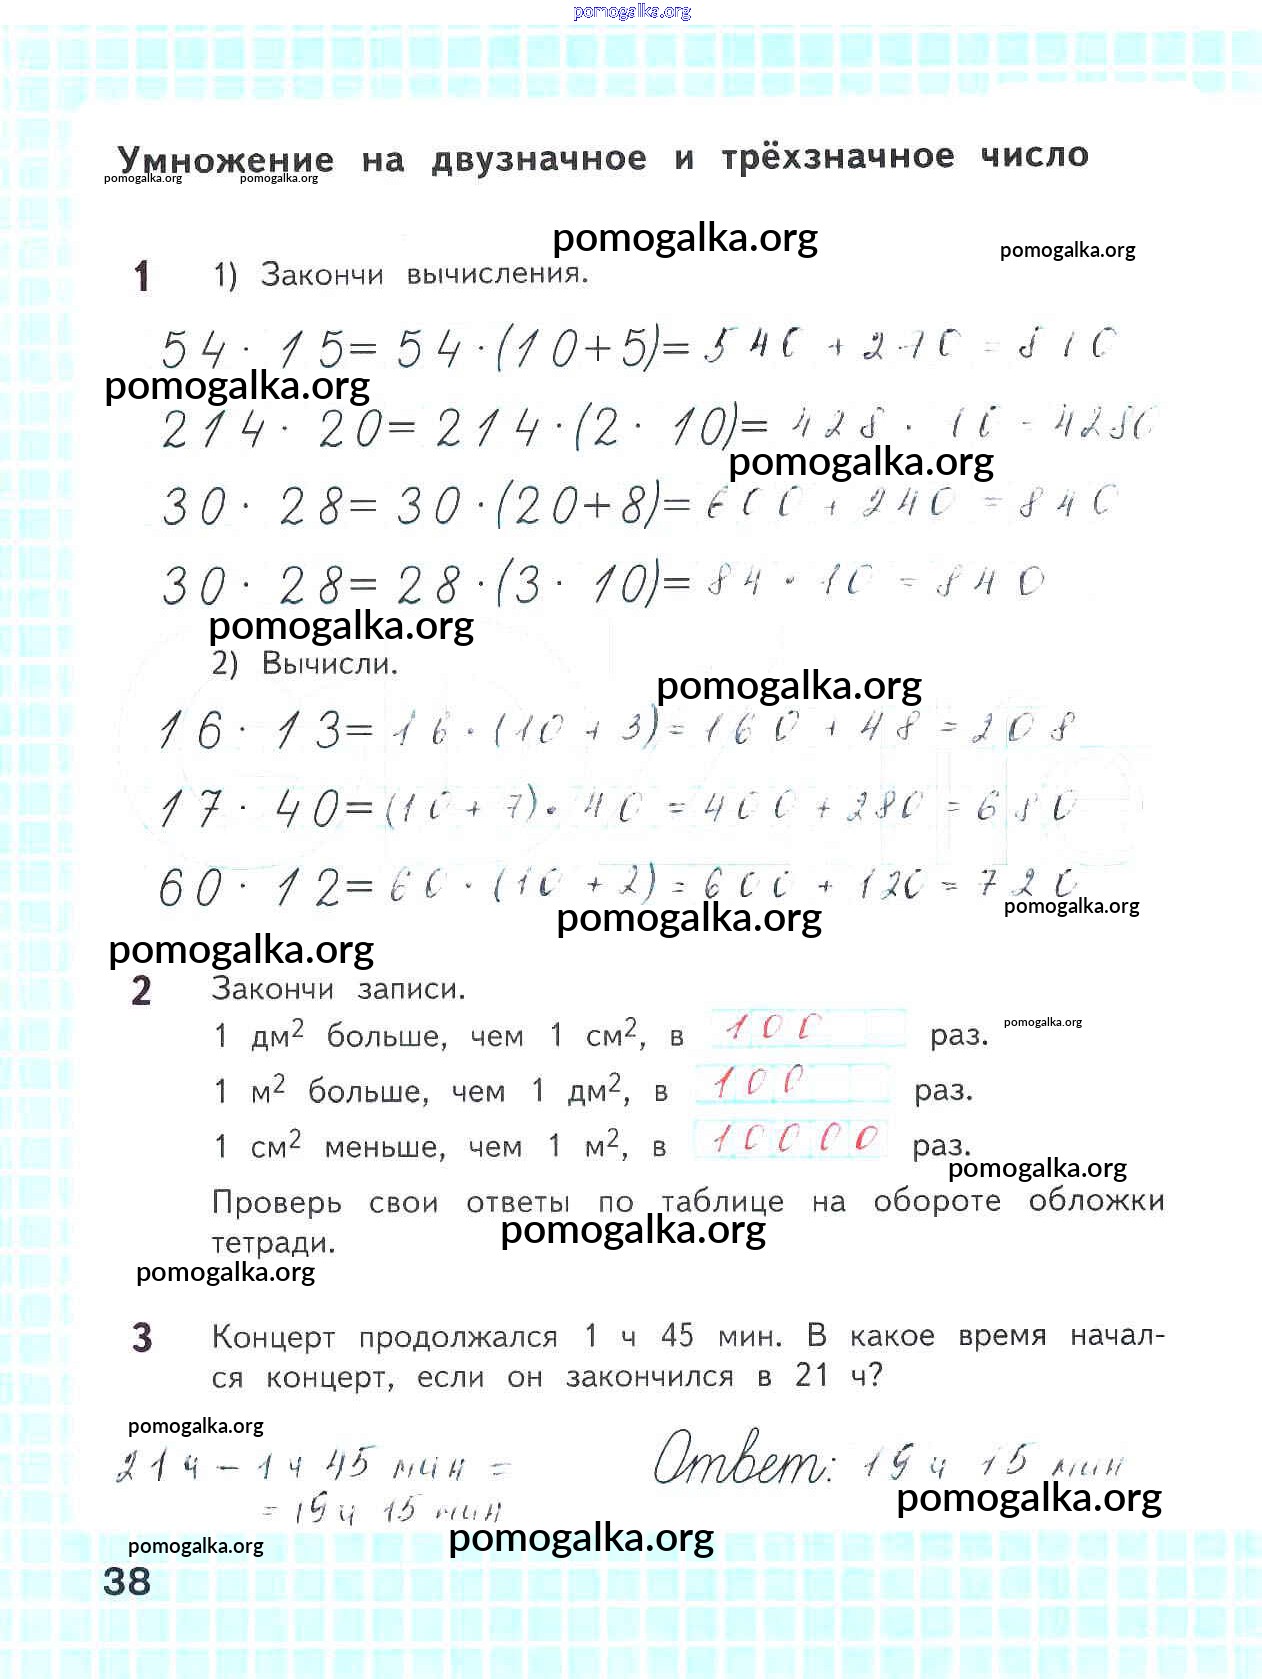 pomogalka.org
Умножение на двузначное и трёхзначное число
pomogalka.org pomogalka.org
pomogalka.org
pomogalka.org
1 1) Закончи вычисления.
54 · 15= 54 · (10+5)= 540 + 270 = 810
pomogalka.org
214 · 20= 214 · (2 · 10)= 428 · 10 = 4280
pomogalka.org
30 · 28= 30 · (20+8)= 600 + 240 = 840
30 · 28= 28 · (3 · 10)= 84 · 10 = 840
pomogalka.org
2) Вычисли.
pomogalka.org
16 · 13= 16 · (10 + 3)= 160 + 48 = 208
17 · 40= (10 + 7) · 40 = 400 + 280 = 680
60 · 12= 60 · (10 + 2) = 600 + 120 = 720
pomogalka.org
pomogalka.org
pomogalka.org
2 Закончи записи.
1 дм² больше, чем 1 см², в 100 раз.
pomogalka.org
1 м² больше, чем 1 дм², в 100 раз.
1 см² меньше, чем 1 м², в 10000 раз.
pomogalka.org
Проверь свои ответы по таблице на обороте обложки
pomogalka.org
тетради.
pomogalka.org
3 Концерт продолжался 1 ч 45 мин. В какое время начал-
ся концерт, если он закончился в 21 ч?
pomogalka.org
21 ч – 1 ч 45 мин =
= 19 ч 15 мин
Ответ: 19 ч 15 мин
pomogalka.org
pomogalka.org
pomogalka.org
38